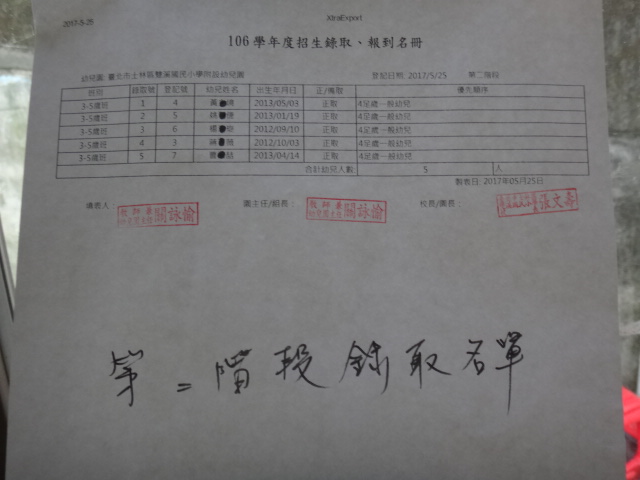 2017-5-25 XtraExport
106 學年度招生錄取、報到名冊
幼兒園: 臺北市士林區雙溪國民小學附設幼兒園 登記日期: 2017/5/25 第二階段
班別 錄取號 登記號 幼兒姓名 出生年月日 正/備取 優先順序
3-5歲班 1 4 2013/05/03 正取 4足歲一般幼兒
3-5歲班 2 5 2013/01/19 正取 4足歲一般幼兒
3-5歲班 3 6 2012/09/10 正取 4足歲一般幼兒
3-5歲班 4 3 2012/10/03 正取 4足歲一般幼兒
3-5歲班 5 7 2013/04/14 正取 4足歲一般幼兒
合計幼兒人數: 5 人
製表日: 2017年05月25日
填表人: 園主任/組長: 校長/園長:
關詠愉 關詠愉 張文斋
第二階段錄取名單